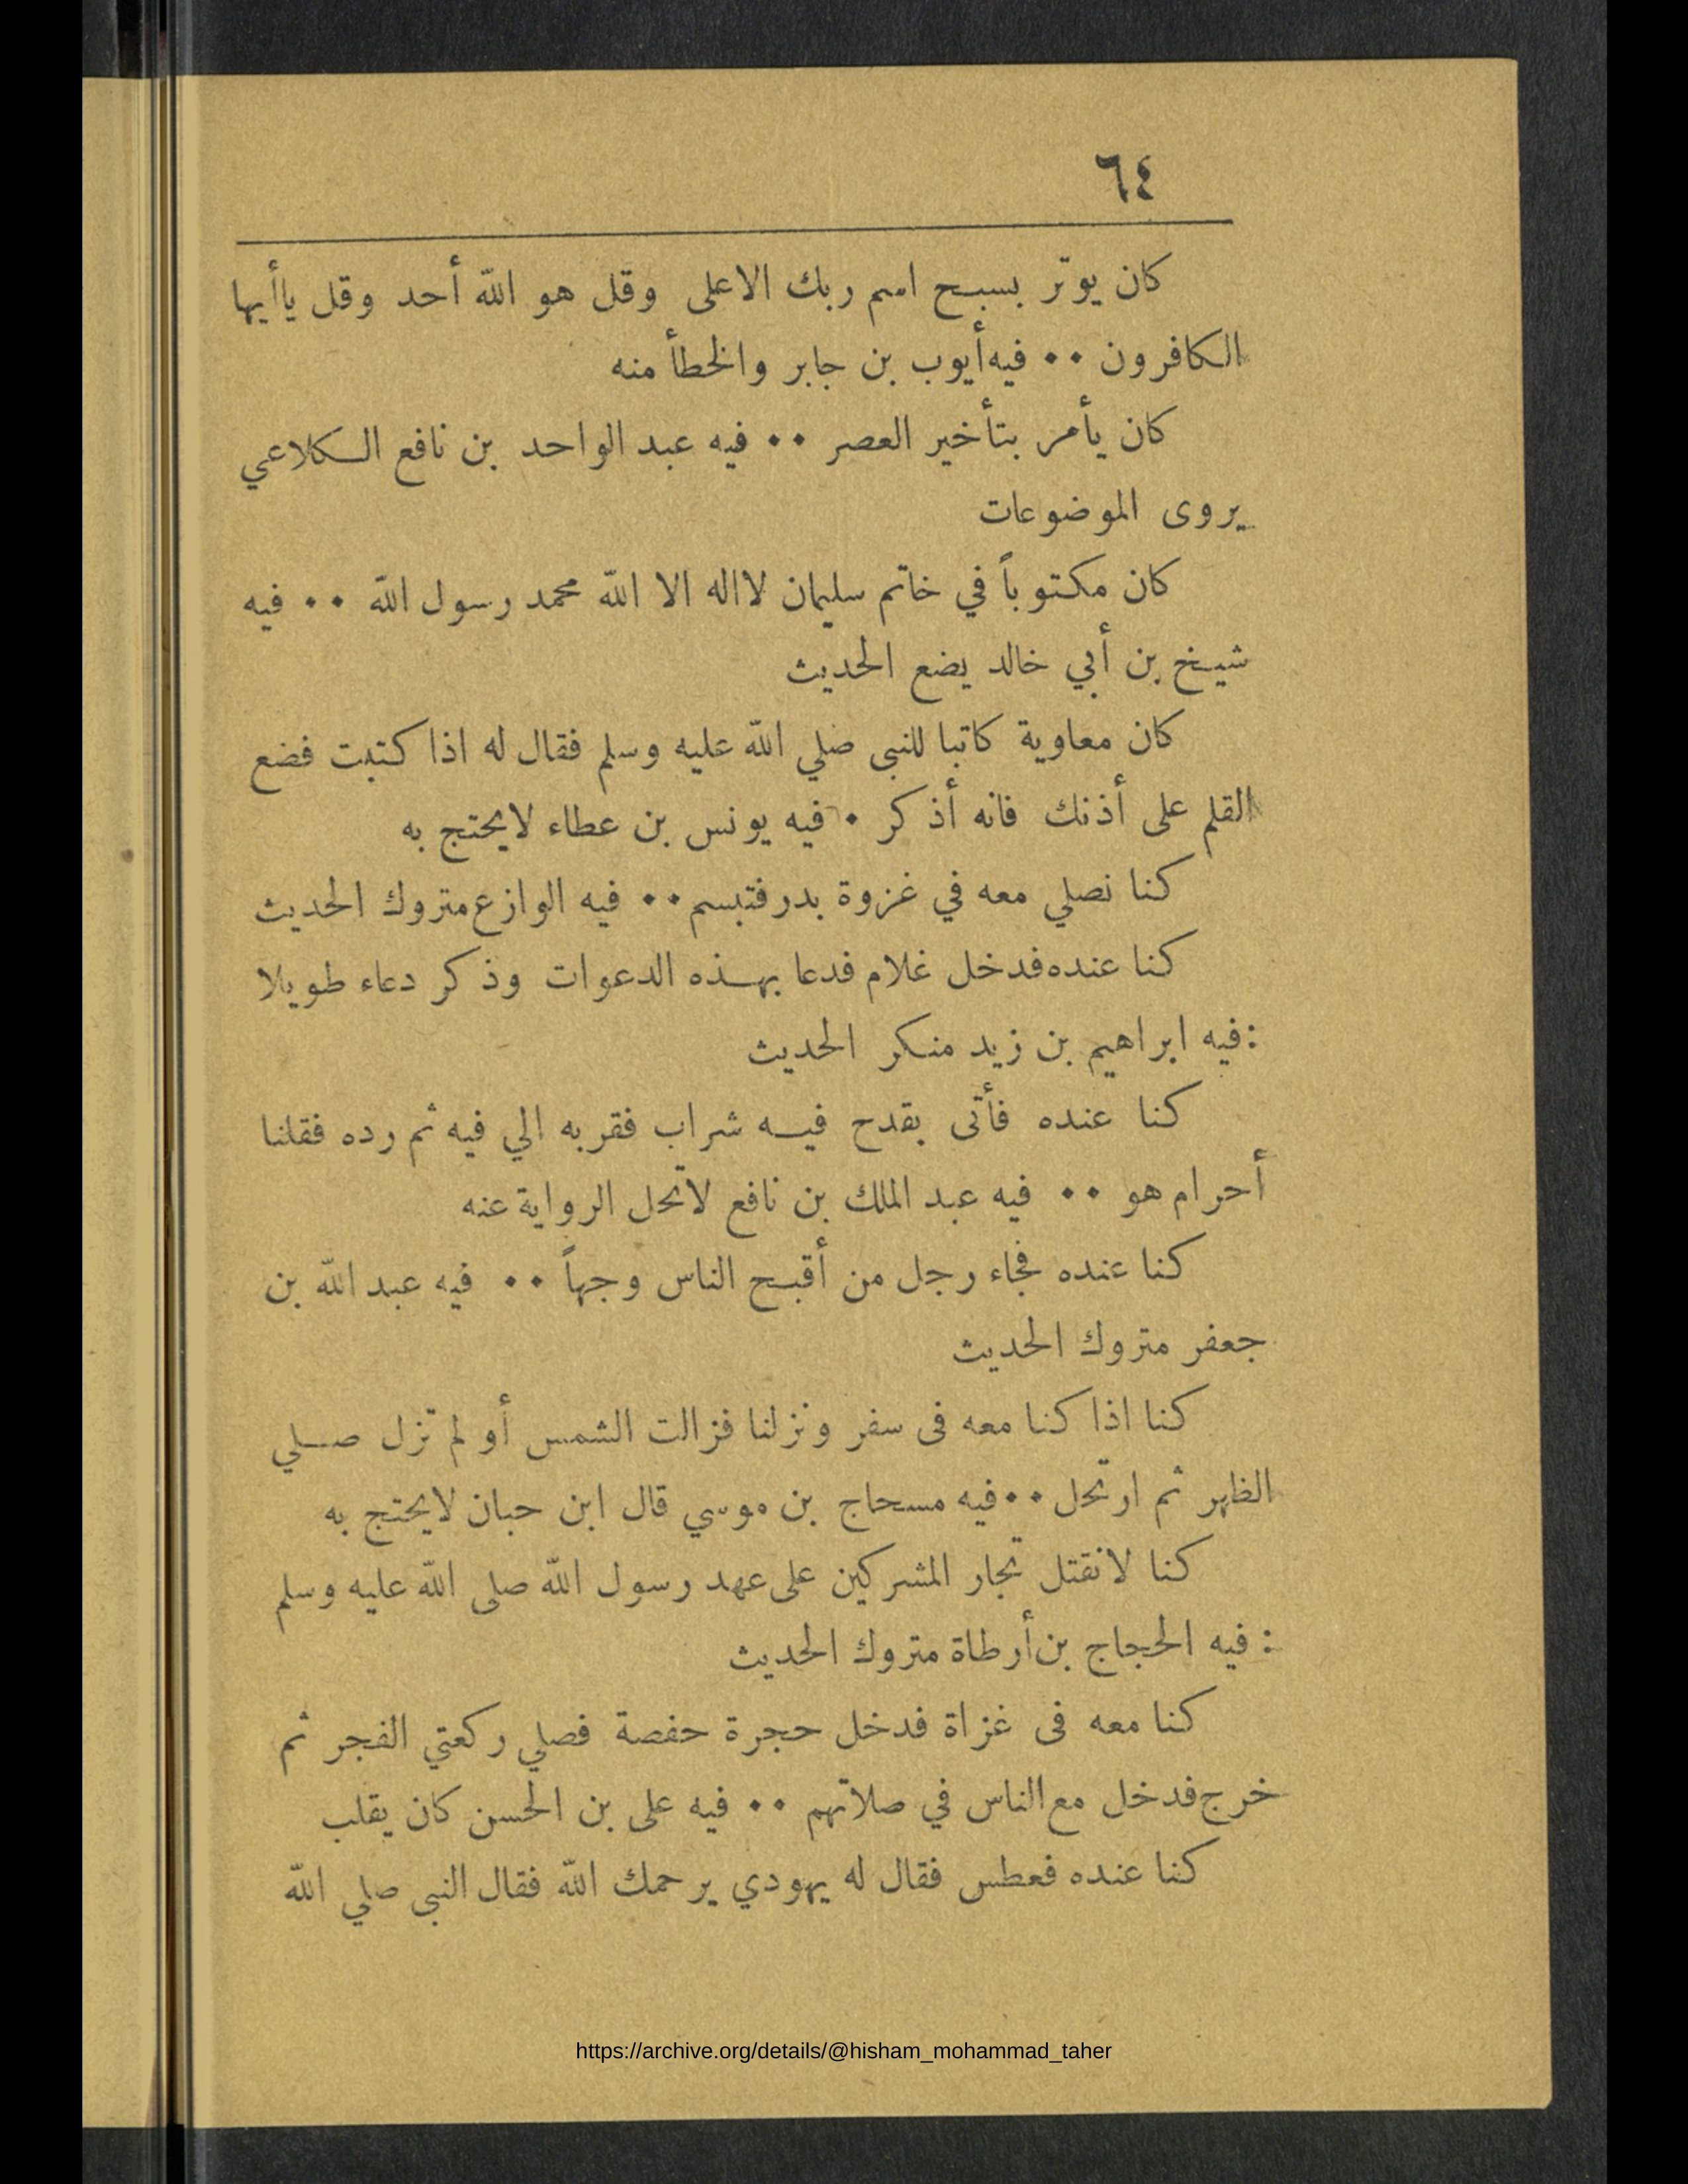 ٦٤
كان يوتر بسبح اسم ربك الاعلى وقل هو الله أحد وقل ياأيها
الكافرون ٠٠ فيه أيوب بن جابر والخطأ منه
كان يأمر بتأخير العصر ٠٠ فيه عبد الواحد بن نافع الكلاعي
يروى الموضوعات
كان مكتوباً في خاتم سليمان لااله الا الله محمد رسول الله ٠٠ فيه
شيخ بن أبي خالد يضع الحديث
كان معاوية كاتبا للنبى صلي الله عليه وسلم فقال له اذا كتبت فضع
القلم على أذنك فانه أذكر ٠ فيه يونس بن عطاء لايحتج به
كنا نصلي معه في غزوة بدر فتبسم ٠٠ فيه الوازع متروك الحديث
كنا عنده فدخل غلام فدعا بهذه الدعوات وذكر دعاء طويلا
: فيه ابراهيم بن زيد منكر الحديث
كنا عنده فأتى بقدح فيه شراب فقربه الي فيه ثم رده فقلنا
أحرام هو ٠٠ فيه عبد الملك بن نافع لاتحل الرواية عنه
كنا عنده فجاء رجل من أقبح الناس وجهاً ٠٠ فيه عبد الله بن
جعفر متروك الحديث
كنا اذا كنا معه فى سفر ونزلنا فزالت الشمس أو لم تزل صلي
الظهر ثم ارتحل ٠٠ فيه مسحاج بن موسي قال ابن حبان لايحتج به
كنا لانقتل تجار المشركين على عهد رسول الله صلى الله عليه وسلم
: فيه الحجاج بن أرطاة متروك الحديث
كنا معه فى غزاة فدخل حجرة حفصة فصلي ركعتي الفجر ثم
خرج فدخل مع الناس في صلاتهم ٠٠ فيه على بن الحسن كان يقلب
كنا عنده فعطس فقال له يهودي يرحمك الله فقال النبى صلي الله
https://archive.org/details/@hisham_mohammad_taher